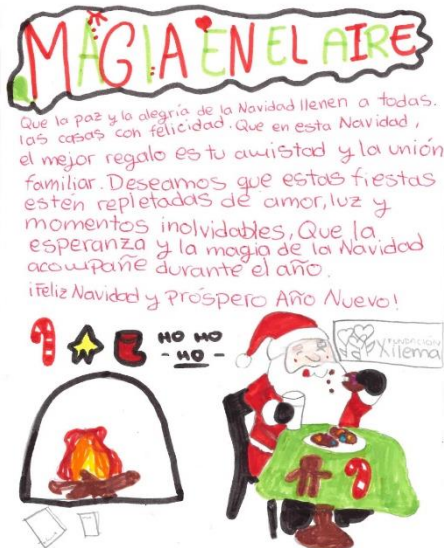 MAGIA EN EL AIRE
Que la paz y la alegría de la Navidad llenen a todas.
las casas con felicidad. Que en esta Navidad,
el mejor regalo es tu amistad y la unión
familiar. Deseamos que estas fiestas
estén repletadas de amor, luz y
momentos inolvidables, Que la
esperanza y la magia de la Navidad
acompañe durante el año.
¡Feliz Navidad y Próspero Año Nuevo!
HO HO
- HO -
FUNDACIÓN
Xilema